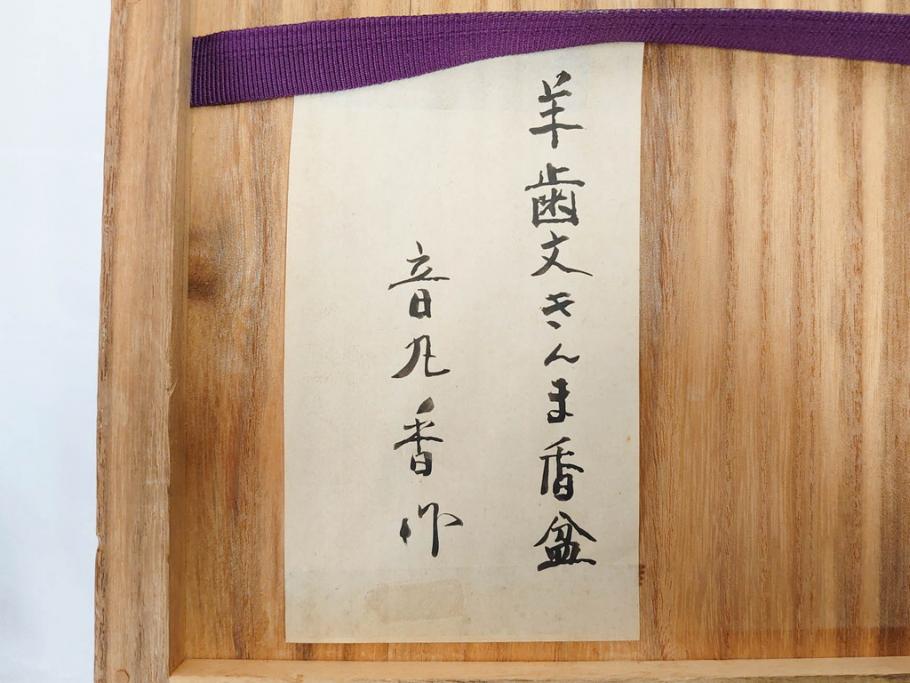 羊歯文きんま香盆
音丸香作